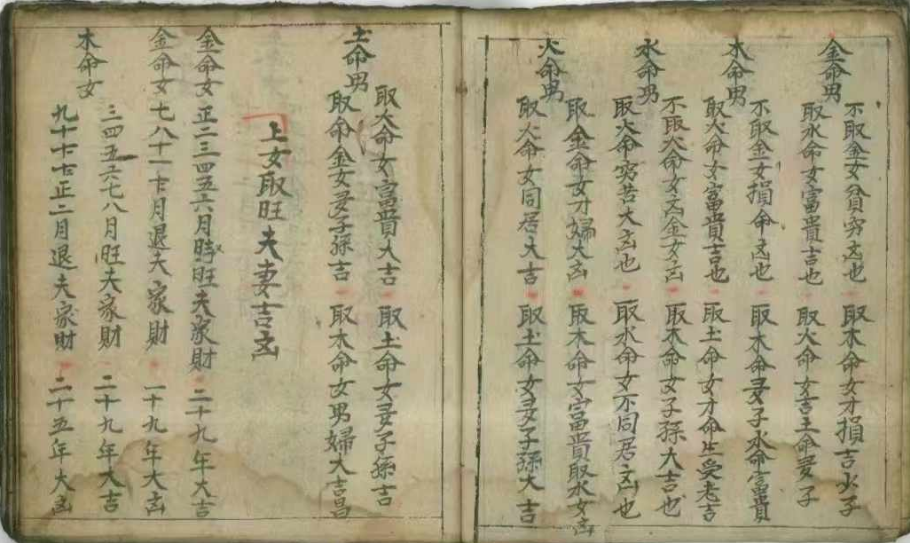 金命男
不取金女貧穷凶也 取木命女才損吉火子
取水命女富貴吉也 取火命女吉土命妻子
木命男
不取金女損命凶也 取木命妻子水命富貴
取火命女富貴吉也 取土命女才命生受老吉
水命男
不取火命女凶金女凶 取木命女子孫大吉也
取火命穷苦大凶也 取水命女不同居凶也
火命男
取金命女才婦大凶 取木命女富貴取水女凶
取火命女同居大吉 取土命女妻子孫大吉
土命男
取火命女富貴大吉 取土命女妻子孫吉
取命金女妻子孫吉 取木命女男婦大吉昌
上女取旺夫妻吉凶
金命女 正二三四五六月時旺夫家財 二十九年大吉
金命女 七八十一十月退夫家財 一十九年大凶
木命女
三四五六七八月旺夫家財 二十九年大吉
九十十七正二月退夫家財 二十五年大凶